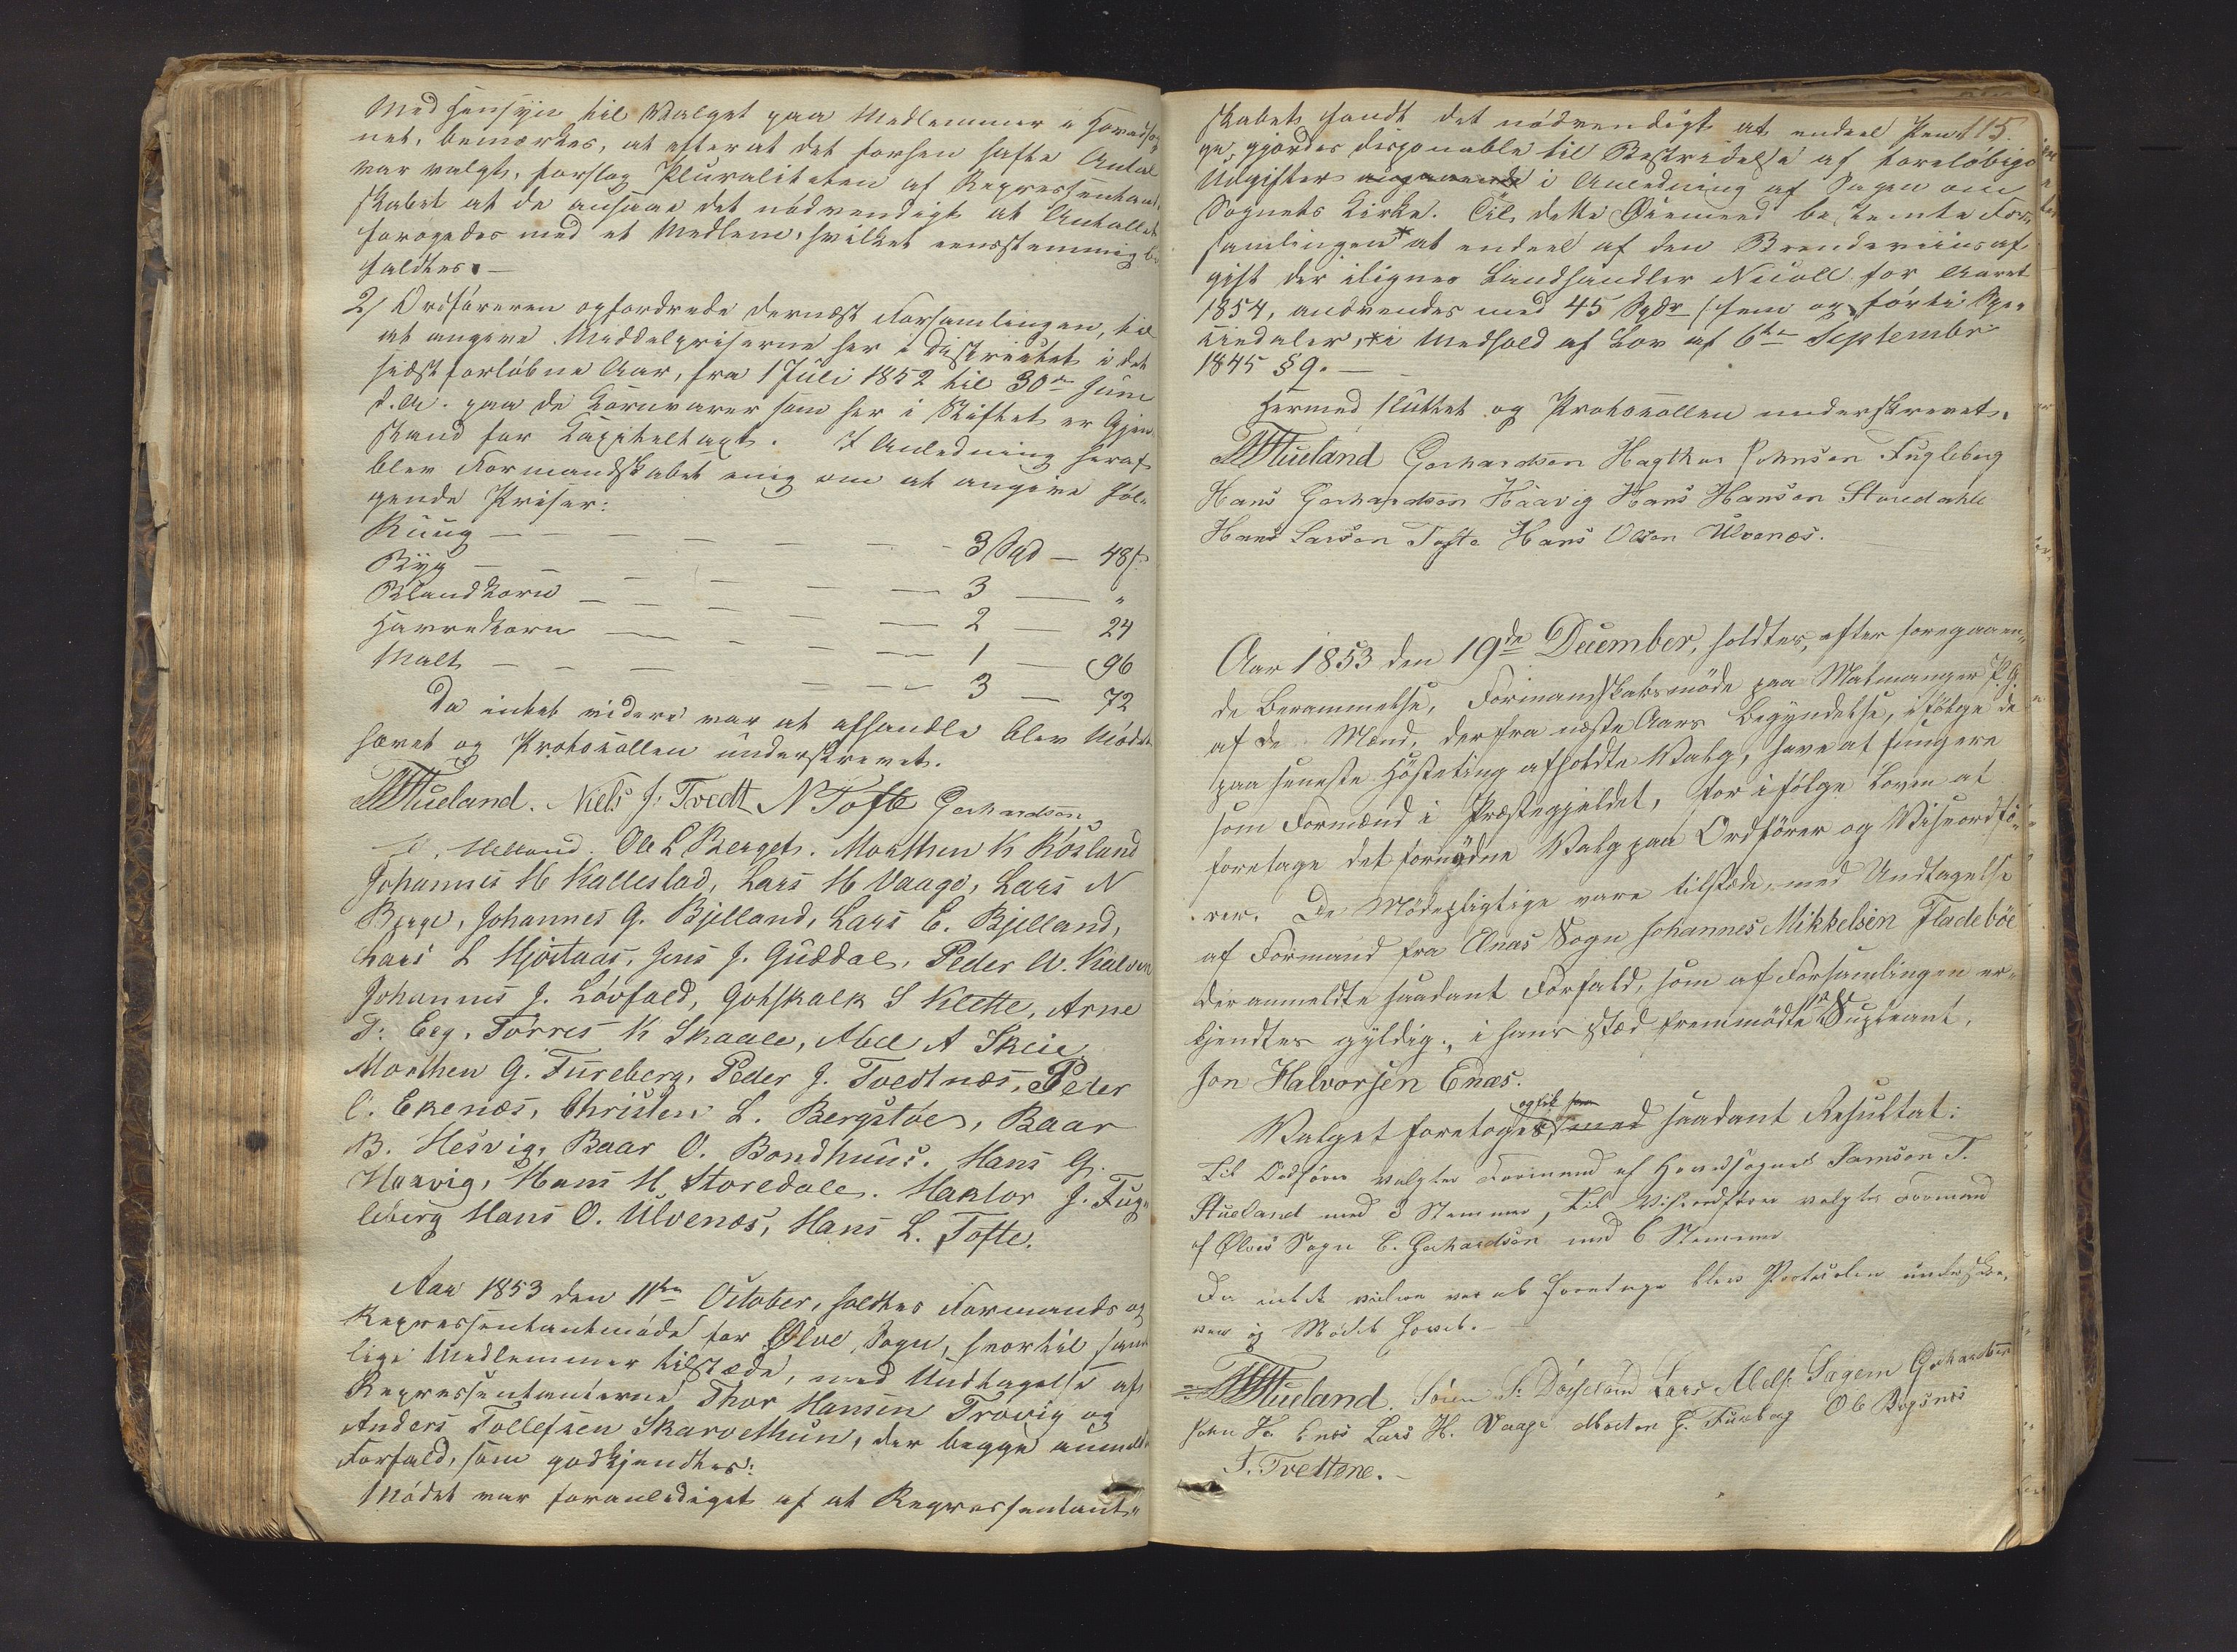 Med Hensyn til Valget paa Medlemmer i Hovedsog
net, bemærkes, at efterat det forhen hafte Antal
var valgt, forslog Pluraliteten af Repressentant
skabet at de ansaae det nödvendigt at Antallet
forögedes med et Medlem, hvilket eensstemmig be
faldtes. —
2/ Ordföreren opfordrede dernæst Forsamlingen, til
at angive Middelpriserne her i Districtet i det
sidst forlöbne Aar, fra 1 Juli 1852 til 30te Juni
d.A. paa de Kornvarer som her i Stiftet er Gjen
stand for Kapiteltaxt. I Anledning heraf
blev Formandskabet enig om at angive föl-
gende Priser:
Ruug — 3 Spd — 48 s
Byg — 3 — "
Blandkorn — 2 — 24
Havrekorn — 1 — 96
Malt — 3 — 72
Da intet videre var at afhandle blev Mödet
hævet og Protokollen underskrevet.
Stueland. Niels J. Tvedt N Tofte Gerhardson
Helland. Ole L Berget. Morthen K Rösland
Johannes M Kallestad, Lars H Vaage, Lars N
Berge, Johannes G. Bjelland, Lars E. Bjelland,
Lars L Hjortaas, Jens J. Guddal, Peder A. Kalven
Johannes J. Lövfald, Gotskalk S Klette, Arne
T. Eeg, Törres K Skaale, Abel A Skeie
Morthen G. Fureberg, Peder J. Tvedtnæs, Peder
C. Ekenæs, Christen L. Bergstöe, Baar
B. Hesvig, Baar O. Bondhuus. Hans G.
Haavig, Hans H Storedale. Haktor J. Fug-
leberg Hans O. Ulvenæs, Hans L. Tofte.
Aar 1853 den 11te October, holdtes Formands og
Repressentantmöde for Ølve Sogn, hvortil samt
lige Medlemmer tilstæde, med Undtagelse af
Repressentanterne Thor Hansen Trovig og
Anders Tollefsen Skarvethun, der begge anmeldte
Forfald, som godkjendtes:
Mödet var foranlediget af at Repressentant-
115.
skabet fandt det nödvendigt at endeel Pen
ge gjordes disponable til Bestridelse af forelöbige
Udgifter angaaende i Anledning af Sagen om
Sognets Kirke. Til dette Øiemeed bestemte For-
samlingen * at endeel af den Brændeviinsaf
gift der ilignes Landhandler Nicoll for Aaret
1854, anvendes med 45 Spdr (fem og förti Spe-
ciedaler, * i Medhold af Lov af 6te Septembr
1845 § 9. —
Hermed sluttet og Protokollen underskrevet.
Stueland Gerhardson Hagthor Johnson Fugleberg
Hans Gerhardson Haavig Hans Hanson Storedahle
Hans Larson Tofte Hans Olson Ulvenæs.
Aar 1853 den 19de December, holdtes, efter foregaaen-
de Berammelse, Formandskabsmöde paa Malmanger P.G.
af de Mænd, der fra næste Aars Begyndelse, ifölge de
paa seneste Hösteting afholdte Valg, have at fungere
som Formænd i Præstegjeldet, for ifölge Loven at
foretage det fornödne Valg paa Ordförer og Viseordfö-
rer. De Mödepligtige vare tilstæde, med Undtagelse
af Formand fra Enæs Sogn Johannes Mikkelsen Fladeböe
der anmeldte saadant Forfald, som af Forsamlingen er-
kjendtes gyldig., i hans Sted fremmödte Supleant,
Jon Halvorsen Enæs.
Valget foretoges med saadant Resultat:
Til Ordförer valgtes Formand af Hovedsognet Samson T.
Stueland med 8 Stemmer, til Viseordförer valgtes Formand
f Ølves Sogn C. Gerhardson med 6 Stemmer
Da intet videre var at foretage blev Protocolen underskre-
ven og Mödet hævet. —
Stueland. Sören S. Døsseland Lars Abels. Sagem Gerhardson
John H. Enes Lars H. Vaage Morten G. Fureberg Ole Bogsnes
J. Tvettene. —